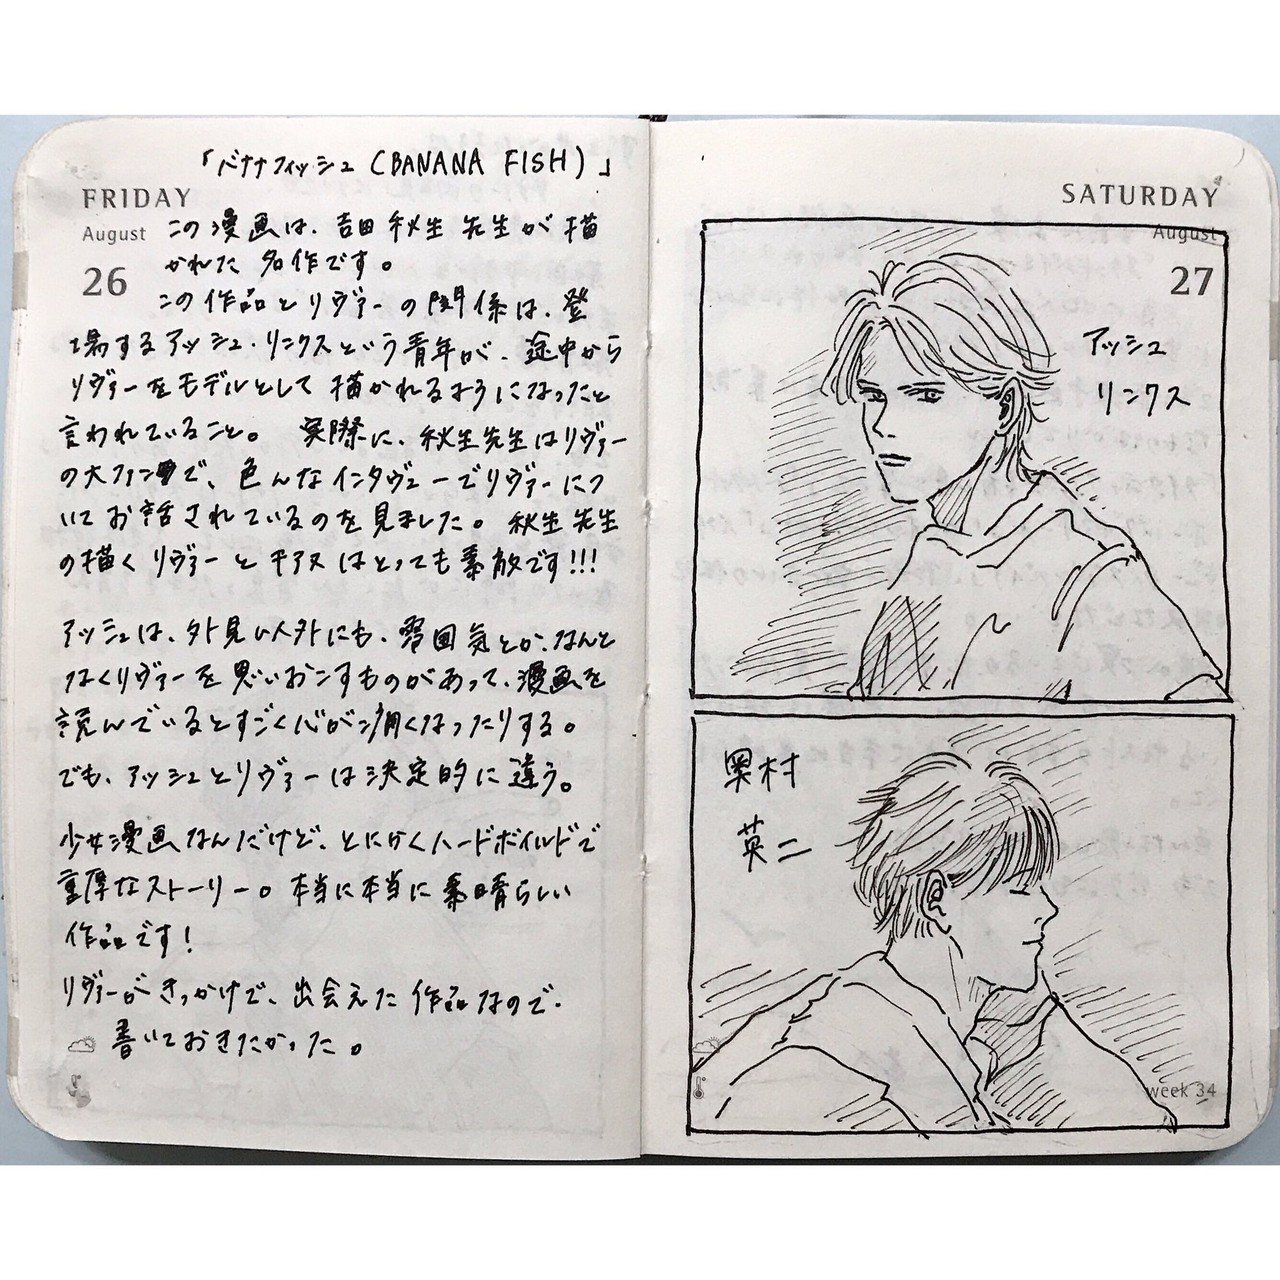 「バナナフィッシュ(BANANA FISH)」
FRIDAY
August
26
この漫画は、吉田秋生先生が描
かれた名作です。
この作品とリヴァーの関係は、登
場するアッシュ・リンクスという青年が、途中から
リヴァーをモデルとして描かれるようになったと
言われていること。 実際に、秋生先生はリヴァー
の大ファンで、色んなインタヴューでリヴァーにつ
いてお話されているのを見ました。秋生先生
の描くリヴァーとキアヌはとっても素敵です!!!
アッシュは、外見以外にも、雰囲気とか、なんと
なくリヴァーを思いおこすものがあって、漫画を
読んでいるとすごく心が痛くなったりする。
でも、アッシュとリヴァーは決定的に違う。
少女漫画なんだけど、とにかくハードボイルドで
重厚なストーリー。本当に本当に素晴らしい
作品です!
リヴァーがきっかけで、出会えた作品なので、
書いておきたかった。
SATURDAY
August
27
アッシュ
リンクス
奥村
英二
week 34